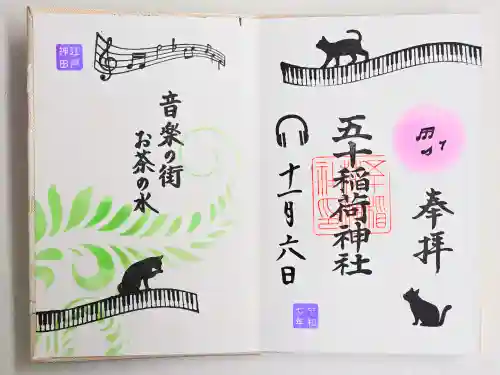 奉拝
五十稲荷神社
十一月六日
令和
七年
江戸
神田
音楽の街
お茶の水